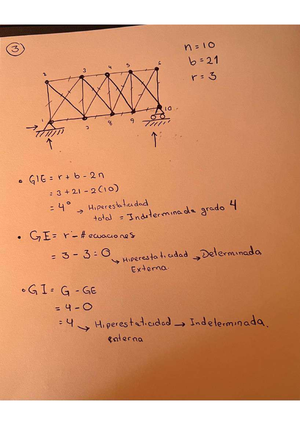 3
n = 10
b = 21
r = 3
10
• GIE = r + b - 2n
= 3 + 21 - 2(10)
= 4° → Hiperestaticidad total = Indeterminada grado 4
• GE = r - # ecuaciones
= 3 - 3 = 0 → Hiperestaticidad Externa → Determinada
• GI = G - GE
= 4 - 0
= 4 → Hiperestaticidad interna → Indeterminada.